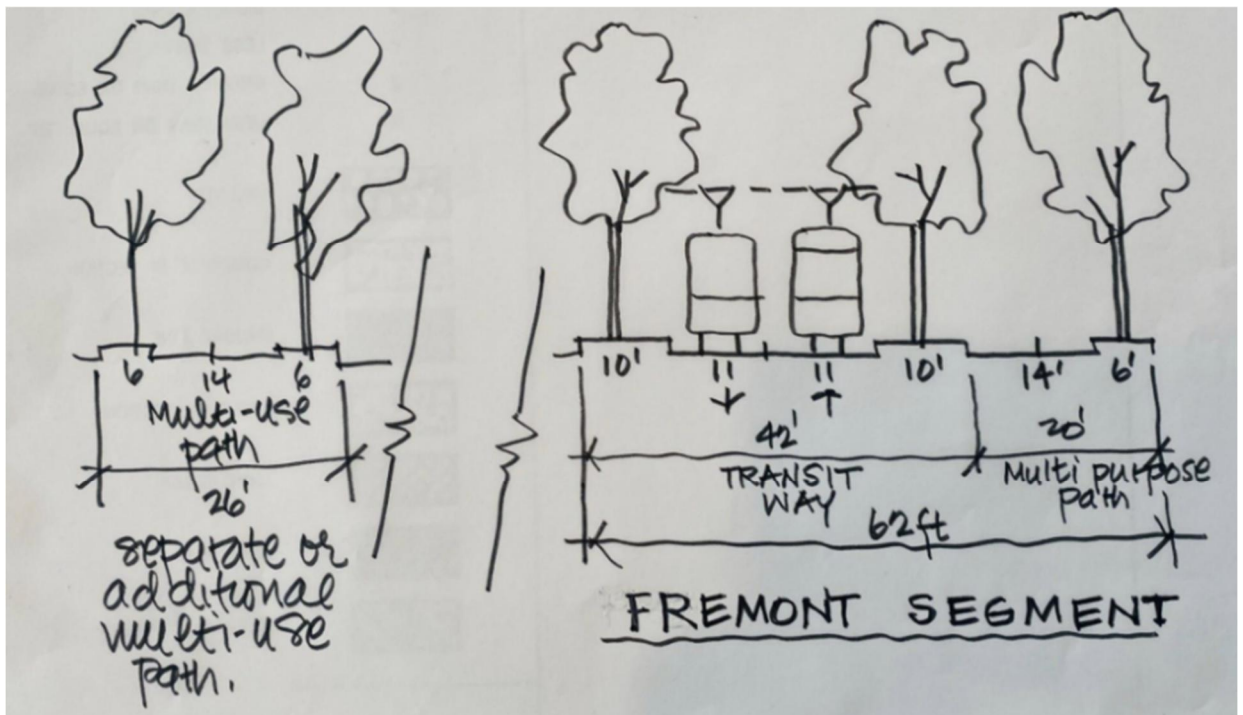 6 14 6
Multi-use
path
26'
separate or
additional
multi-use
path.
10' 11 11 10' 14' 6'
42' 20'
TRANSIT
WAY
Multi purpose
path
62 ft
FREMONT SEGMENT